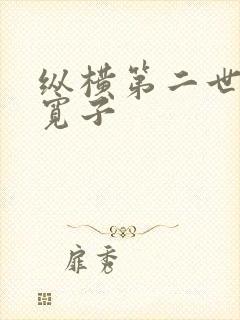 纵横第二世
宽子
扉秀